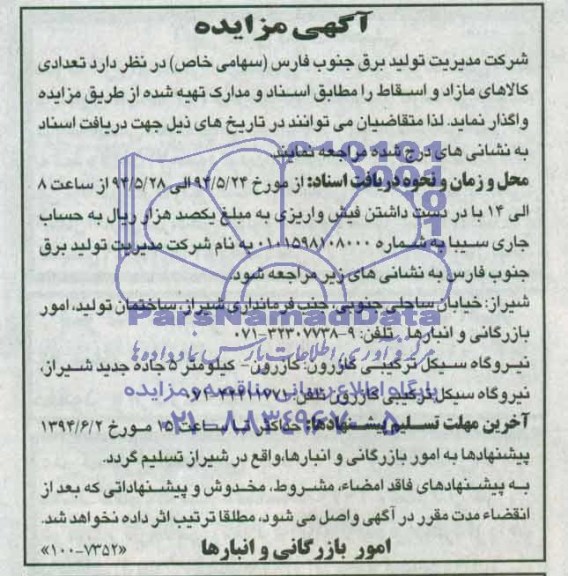 آگهی مزایده
شرکت مدیریت تولید برق جنوب فارس (سهامی خاص) در نظر دارد تعدادی
کالاهای مازاد و اسقاط را مطابق اسناد و مدارک تهیه شده از طریق مزایده
واگذار نماید. لذا متقاضیان می توانند در تاریخ های ذیل جهت دریافت اسناد
به نشانی های درج شده مراجعه نمایند.
محل و زمان و نحوه دریافت اسناد: از مورخ ۹۴/۵/۲۴ الی ۹۴/۵/۲۸ از ساعت ۸
الی ۱۴ با در دست داشتن فیش واریزی به مبلغ یکصد هزار ریال به حساب
جاری سیبا به شماره ۰۱۰۱۵۹۸۱۰۸۰۰۰ به نام شرکت مدیریت تولید برق
جنوب فارس به نشانی های زیر مراجعه شود.
شیراز: خیابان ساحلی جنوبی، جنب فرمانداری شیراز، ساختمان تولید، امور
بازرگانی و انبارها. تلفن: ۹-۳۲۳۰۷۷۳۸-۰۷۱
ParsNamadData
مرکز فرآوری اطلاعات پارس نماد داده ها
نیروگاه سیکل ترکیبی کازرون: کازرون- کیلومتر ۵ جاده جدید شیراز،
نیروگاه سیکل ترکیبی کازرون تلفن:
پایگاه اطلاع رسانی مناقصه و مزایده
آخرین مهلت تسلیم پیشنهادها: حداکثر تا ساعت ۱۵ مورخ ۱۳۹۴/۶/۲
۰۲۱-۸۸۳۴۹۶۷۰-۵
پیشنهادها به امور بازرگانی و انبارها، واقع در شیراز تسلیم گردد.
به پیشنهادهای فاقد امضاء، مشروط، مخدوش و پیشنهاداتی که بعد از
انقضاء مدت مقرر در آگهی واصل می شود، مطلقا ترتیب اثر داده نخواهد شد.
امور بازرگانی و انبارها
«۱۰۰-۷۳۵۲»